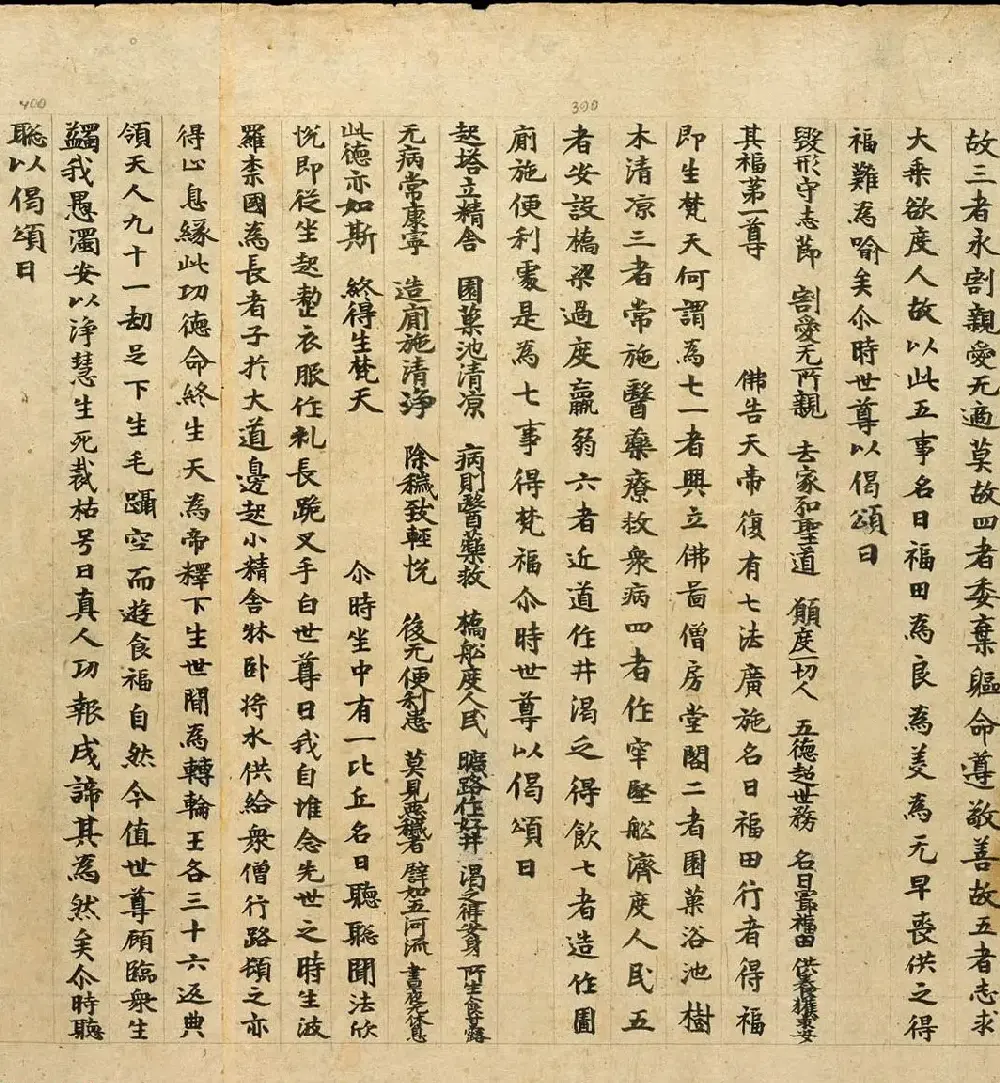 故三者永割親愛无適莫故四者委棄軀命遵敬善故五者志求
大乘欲度人故以此五事名曰福田為良為美為无早喪供之得
福難為喻矣尒時世尊以偈頌曰
毀形守志節 割愛无所親 去家和聖道 願度一切人 五德超世務 名曰最福田 供養獲永安
其福第一尊
佛告天帝復有七法廣施名曰福田行者得福
即生梵天何謂為七一者興立佛啚僧房堂閣二者園菓浴池樹
木清凉三者常施醫藥療救衆病四者作牢堅舩濟度人民五
者安設橋梁過度羸弱六者近道作井渴乏得飲七者造作圊
廁施便利處是為七事得梵福尒時世尊以偈頌曰
起塔立精舍 園菓池清凉 病則醫藥救 橋舩度人民 曠路作好井 渴乏得安身 所生食甘露
无病常康寧 造廁施清淨 除穢致輕恱 後无便利患 莫見惡穢者 譬如五河流 晝夜无休息
此德亦如斯 終得生梵天
尒時坐中有一比丘名曰聽聦聞法欣
恱即從坐起整衣服作礼長跪叉手白世尊曰我自惟念先世之時生波
羅柰國為長者子扵大道邊起小精舍牀卧將水供給衆僧行路頓之亦
得止息縁此功德命終生天為帝釋下生世間為轉輪王各三十六返典
領天人九十一劫足下生毛躡空而遊食福自然今值世尊顧臨衆生
蠲我愚濁安以淨慧生死栽枯号曰真人功報成諦其為然矣尒時聽
聦以偈頌曰
400
300